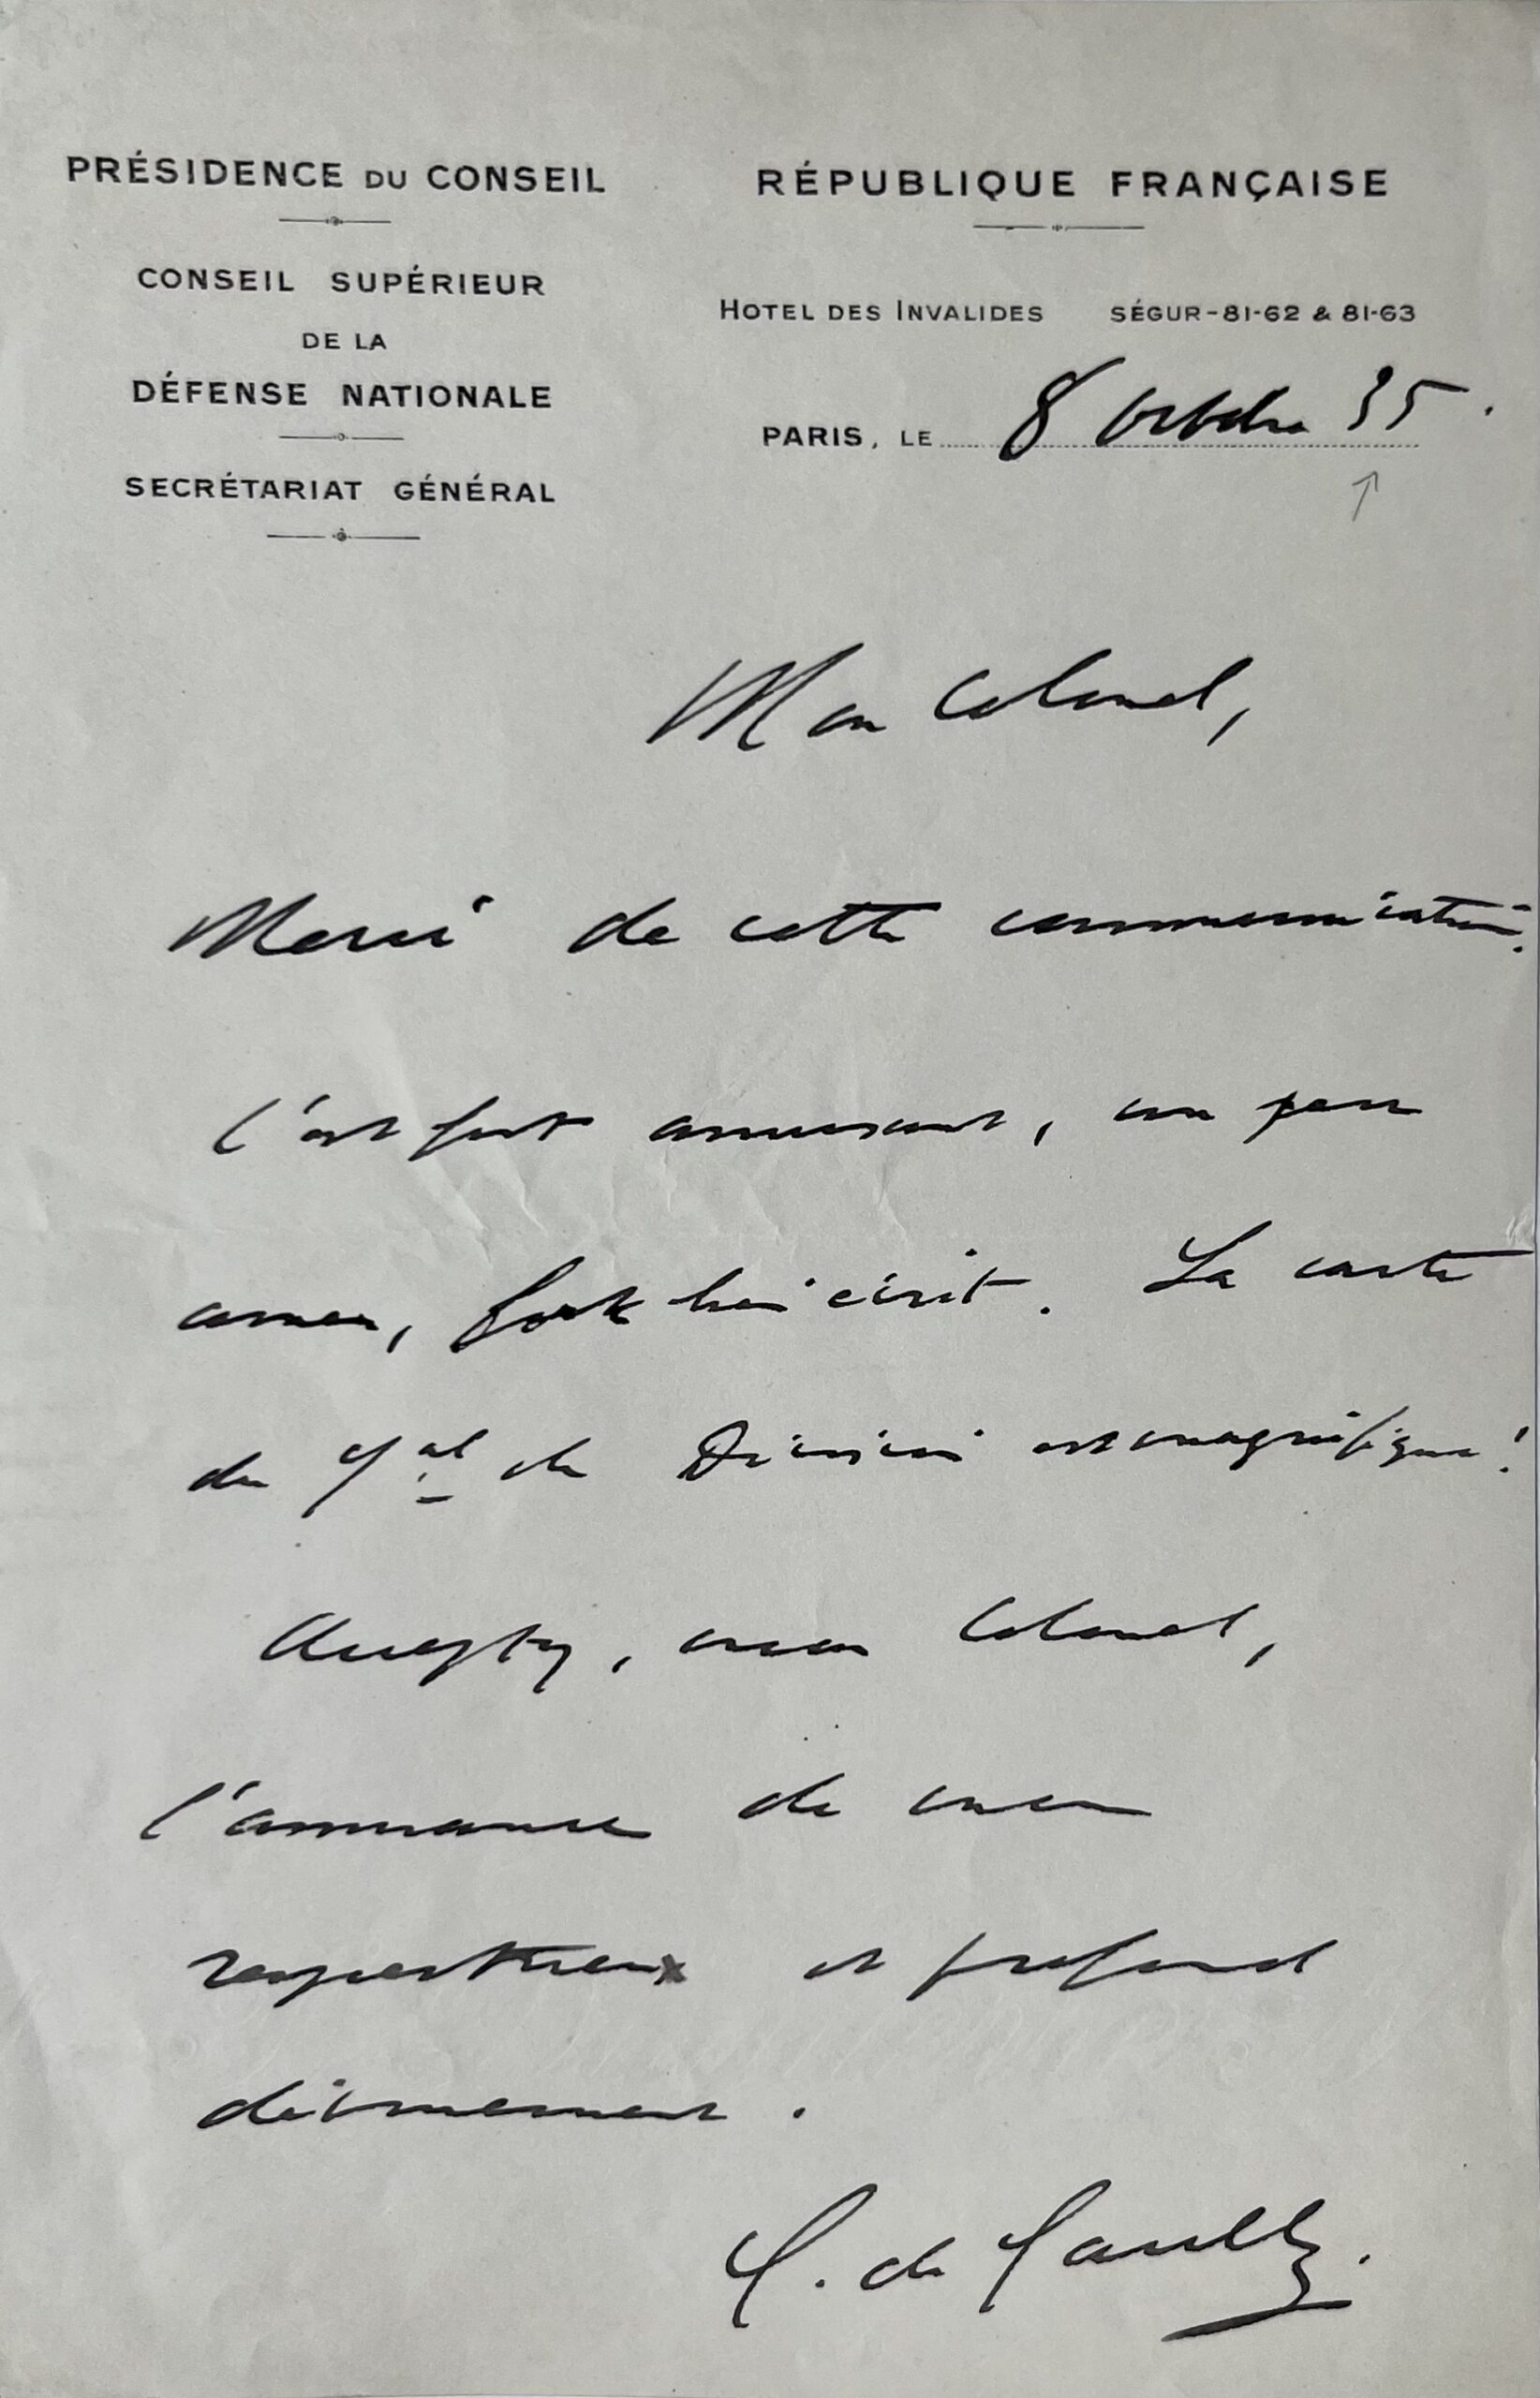 PRÉSIDENCE DU CONSEIL
CONSEIL SUPÉRIEUR
DE LA
DÉFENSE NATIONALE
SECRÉTARIAT GÉNÉRAL
RÉPUBLIQUE FRANÇAISE
HOTEL DES INVALIDES SÉGUR-81-62 & 81-63
PARIS, LE 8 octobre 35.
Mon Colonel,
Merci de cette communication.
C'est fort amusant, un peu
amer, fort bien écrit. La carte
du Gal de Division est magnifique!
Acceptez, mon Colonel,
l'assurance de mon
respectueux et profond
dévouement.
C. de Gaulle.